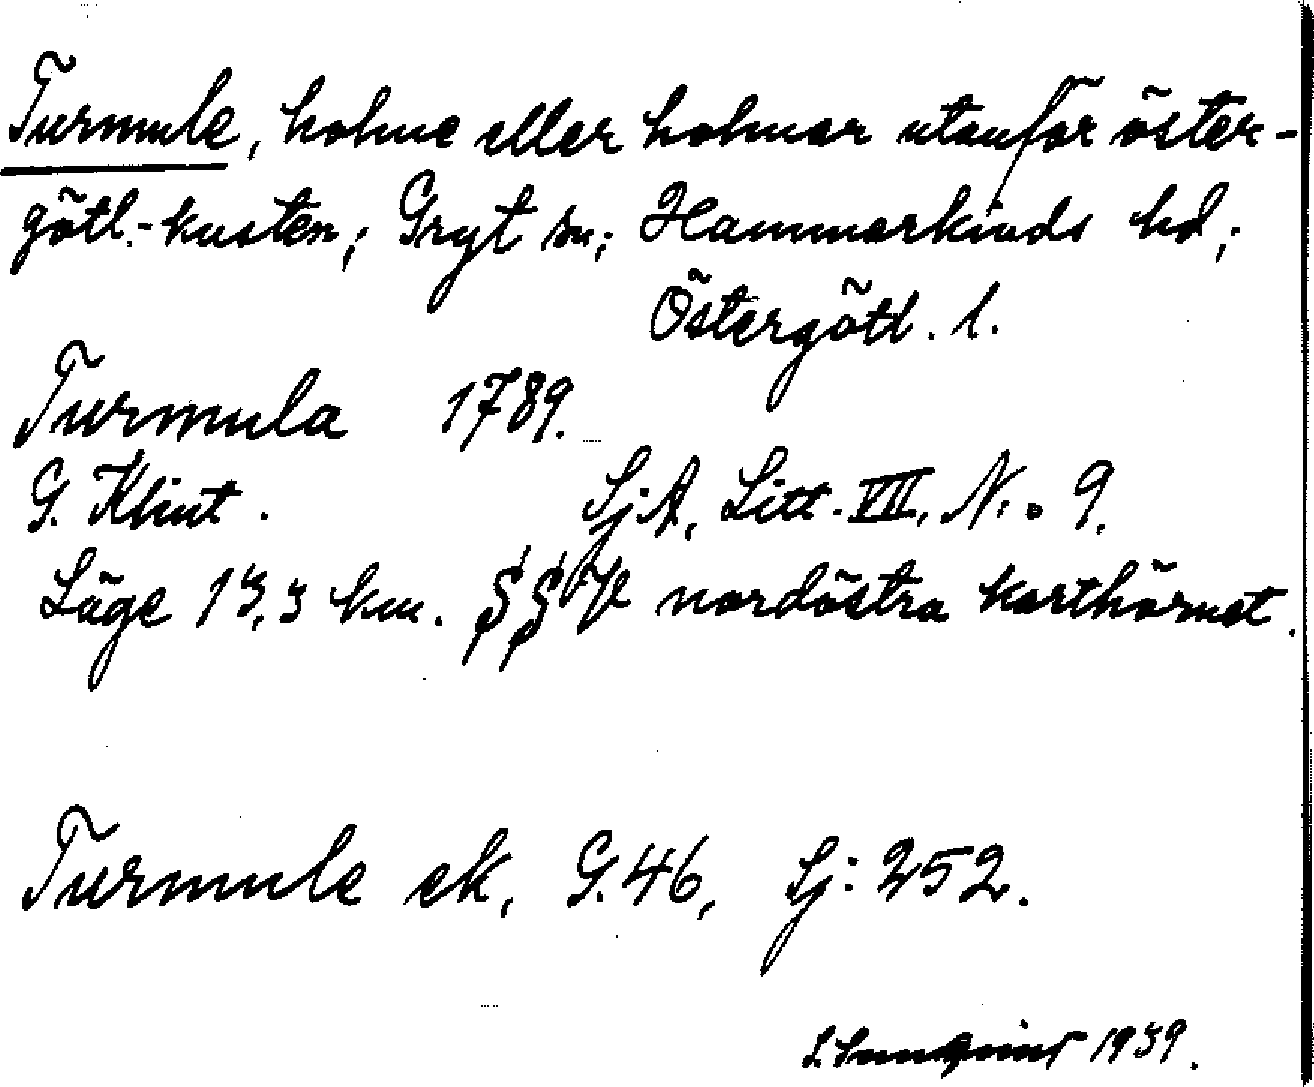 Turmule, holme eller holmar utanför öster-
götl.-kusten; Gryt sn; Hammarkinds hd;
Östergötl. l.
Turmula 1789.
G. Klint. SjA, Litt. VII, N:o 9.
Läge 13,3 km. SSV nordöstra karthörnet.
Turmule ek, G.46, Sj: 252.
1939.